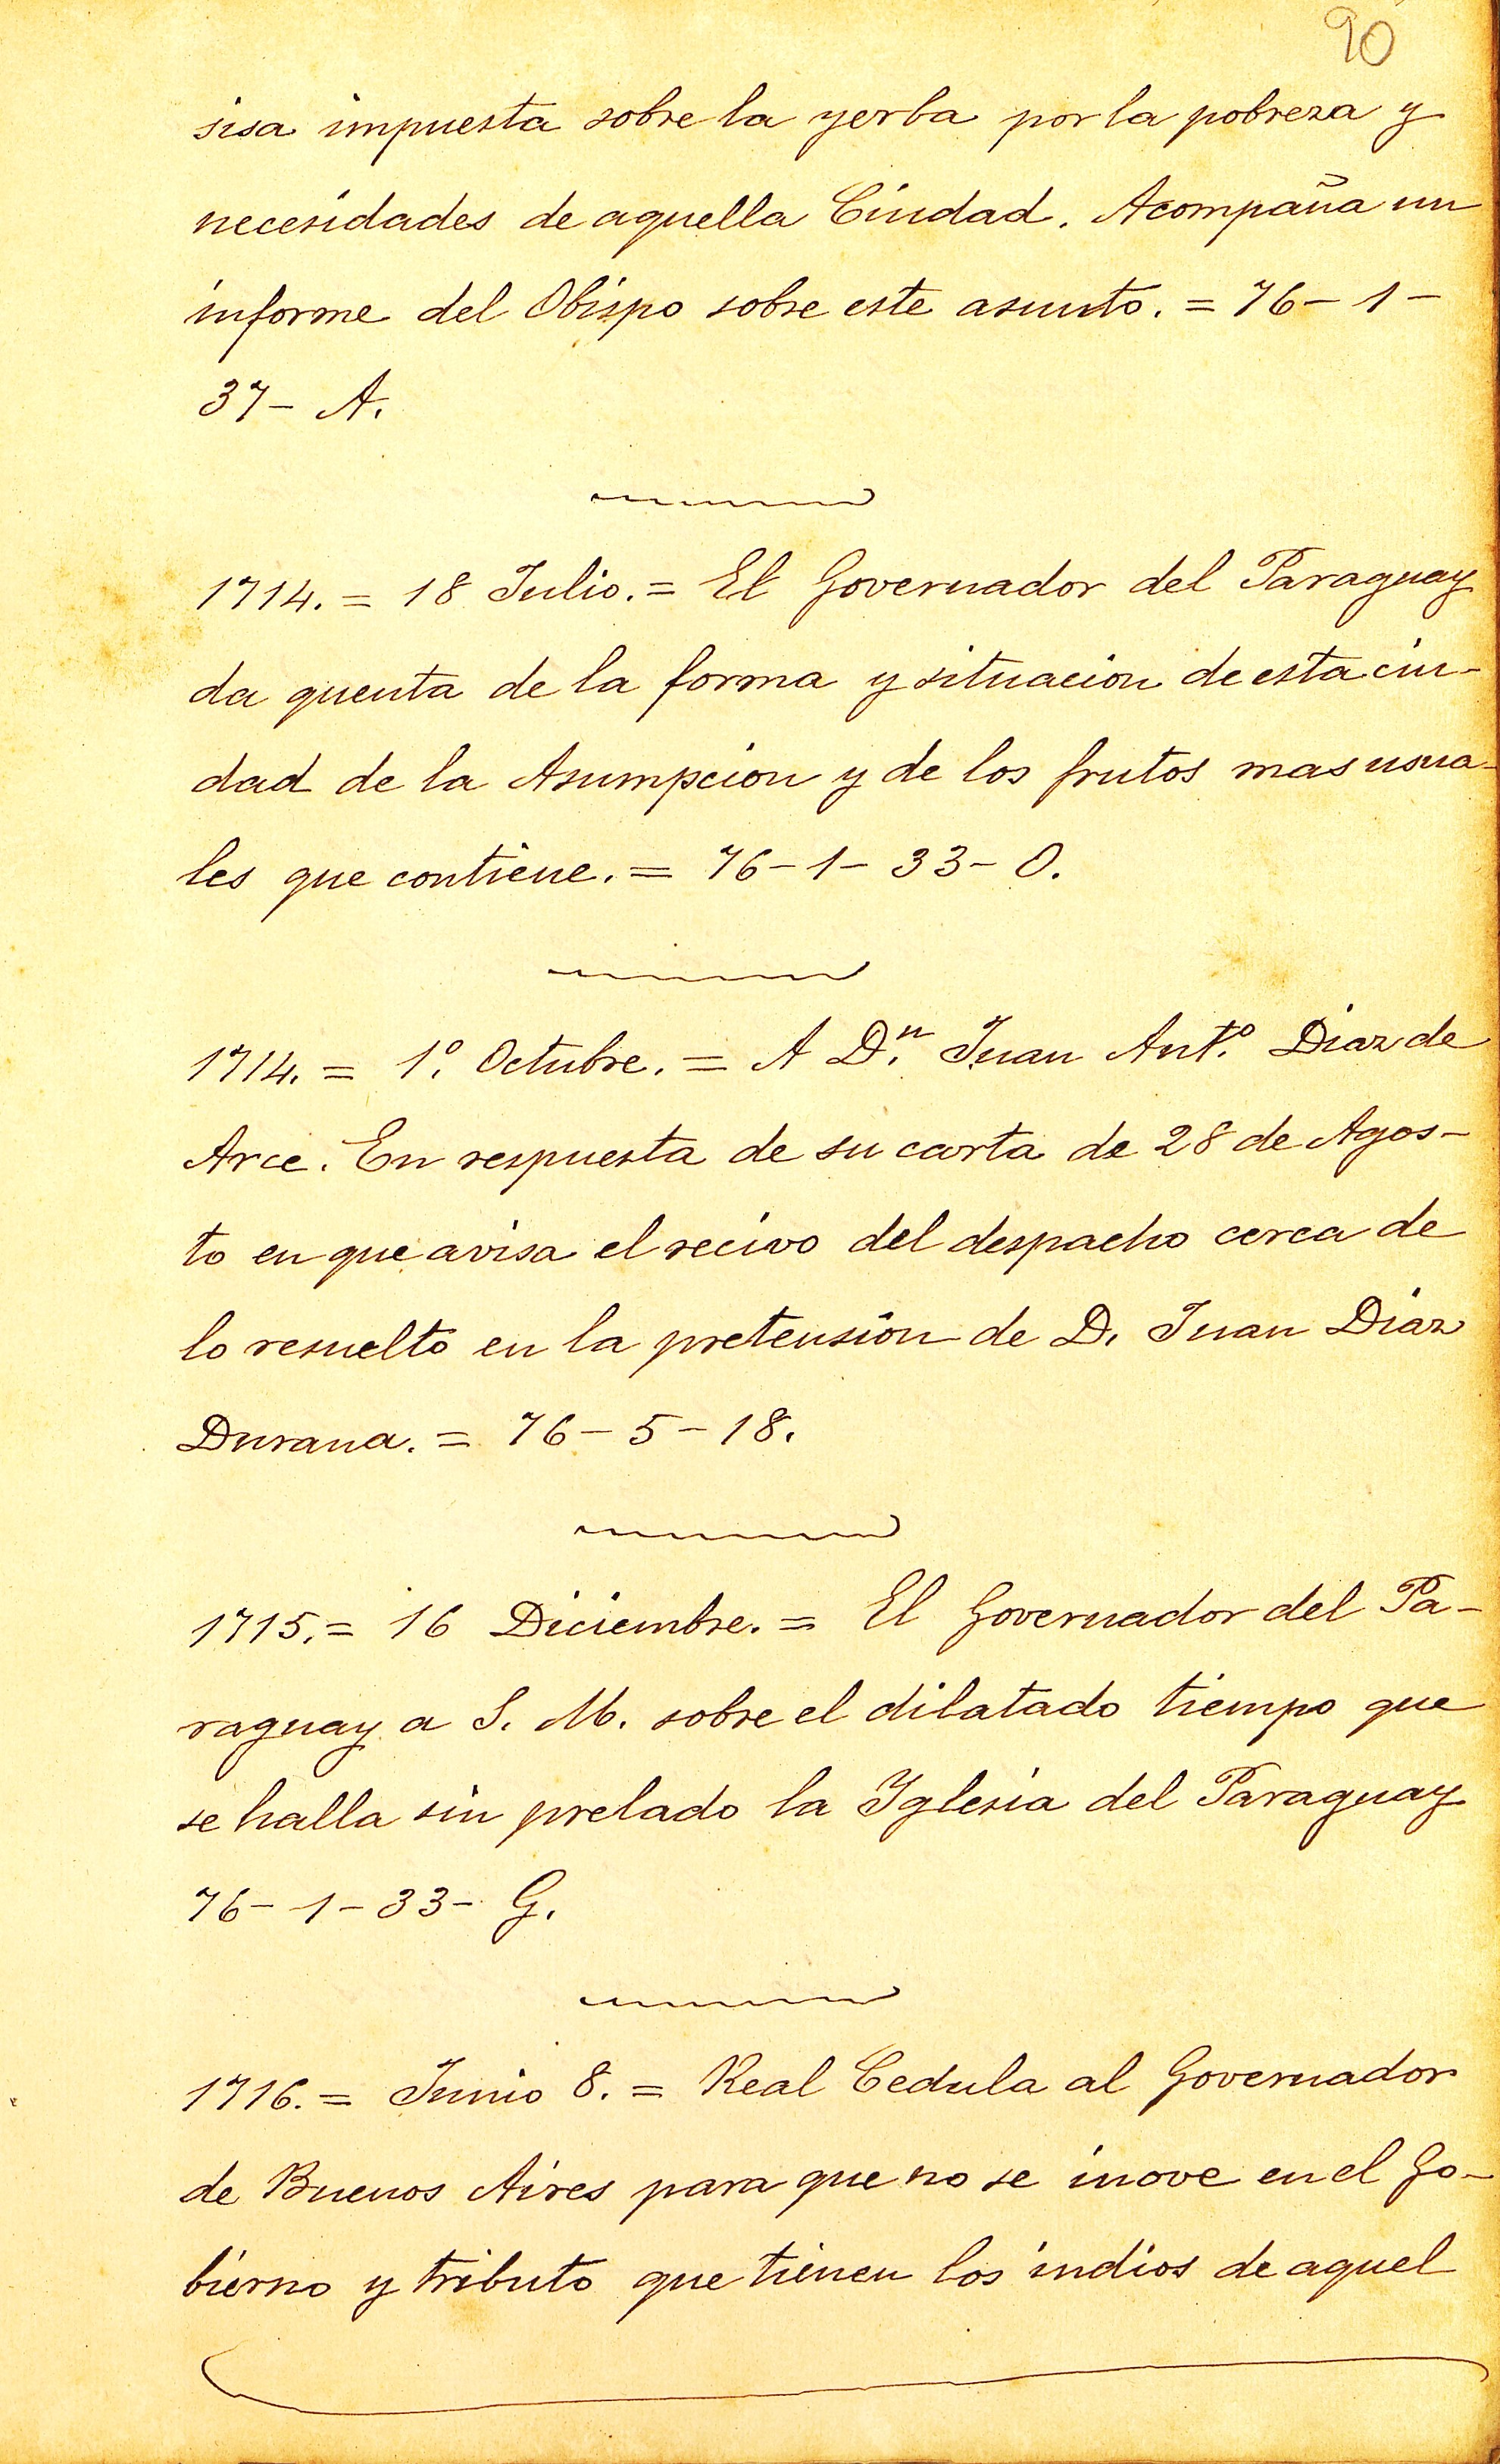 90
sisa impuesta sobre la yerba por la pobreza y
necesidades de aquella Ciudad. Acompaña un
informe del Obispo sobre este asunto. = 76 - 1 -
37 - A.
1714. = 18 Julio. = El Governador del Paraguay
da quenta de la forma y situacion de esta ciu-
dad de la Asumpcion y de los frutos mas usua-
les que contiene. = 76 - 1 - 33 - O.
1714. = 1º. Octubre. = A D.ⁿ Juan Ant.º Diaz de
Arce. En respuesta de su carta de 28 de Agos-
to en que avisa el recivo del despacho cerca de
lo resuelto en la pretension de D. Juan Diaz
Durana. = 76 - 5 - 18.
1715. = 16 Diciembre. = El Governador del Pa-
raguay a S. M. sobre el dilatado tiempo que
se halla sin prelado la Yglesia del Paraguay
76 - 1 - 33 - G.
1716. = Junio 8. = Real Cedula al Governador
de Buenos Aires para que no se inove en el Go-
bierno y tributo que tienen los indios de aquel